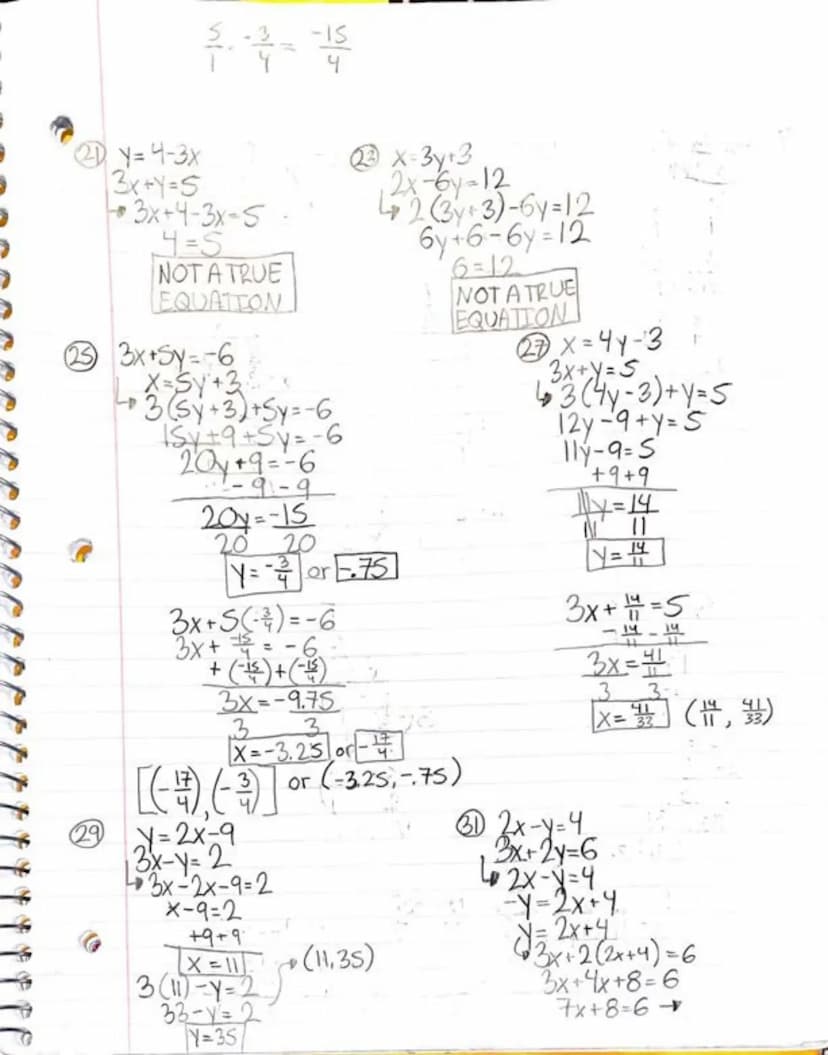 5/1 · -3/4 = -15/4
(21) y=4-3x
3x+y=5
3x+4-3x=5
4=5
NOT A TRUE
EQUATION
(23) x=3y+3
2x-6y=12
2(3y+3)-6y=12
6y+6-6y=12
6=12
NOT A TRUE
EQUATION
(25) 3x+5y=-6
x=5y+3
3(5y+3)+5y=-6
15y+9+5y=-6
20y+9=-6
-9 -9
20y=-15
20 20
y=-3/4 or -.75
3x+5(-3/4)=-6
3x+ -15/4 = -6
+(-15/4)+(-15/4)
3x=-9.75
3 3
x=-3.25 or -17/4
[(-17/4),(-3/4)] or (-3.25,-.75)
(27) x=4y-3
3x+y=5
3(4y-3)+y=5
12y-9+y=5
11y-9=5
+9+9
11y=14
11 11
y=14/11
3x+14/11=5
-14/11 -14/11
3x=41/11
3 3
x=41/33 (14/11, 41/33)
(29) y=2x-9
3x-y=2
3x-2x-9=2
x-9=2
+9+9
x=11 (11,35)
3(11)-y=2
33-y=2
y=35
(31) 2x-y=4
3x+2y=6
2x-y=4
-y=2x+4
y=2x+4
3x+2(2x+4)=6
3x+4x+8=6
7x+8=6 →